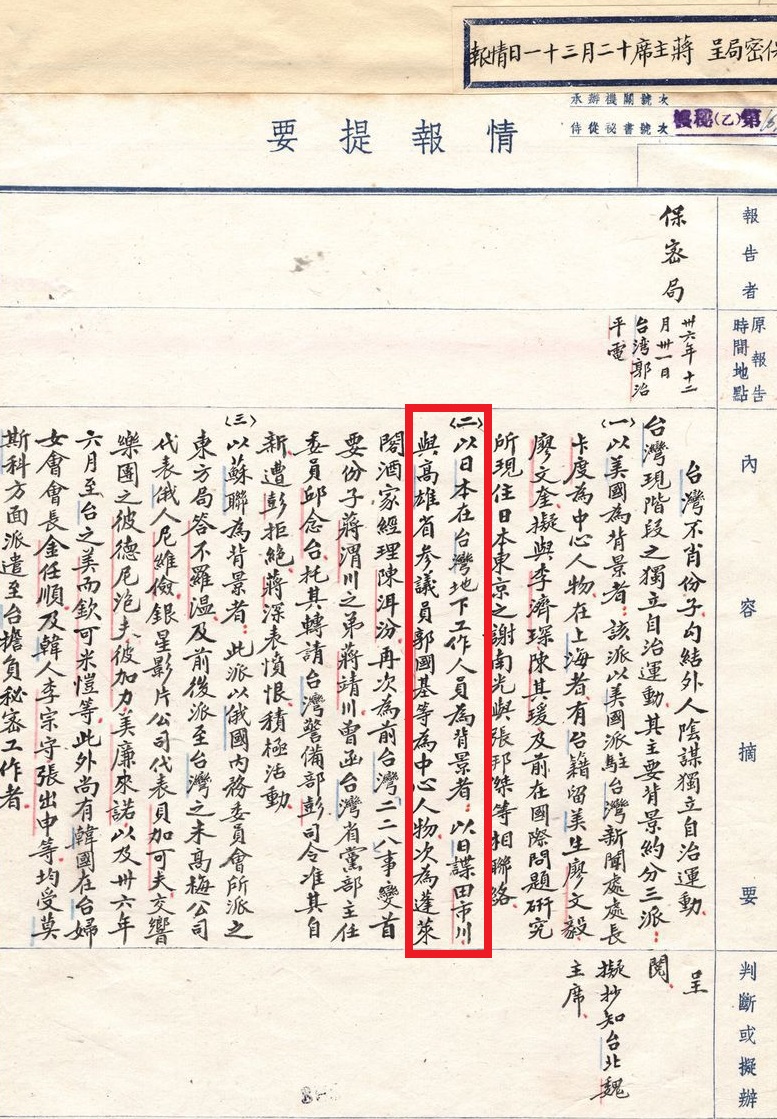 保密局呈 蔣主席十二月三十一日情報
承辦機關號次
侍從秘書號次
機秘(乙)第
情報提要
報告者
保密局
原報告時間地點
卅六年十二
月卅一日
台灣郭治
平電
內容摘要
台灣不肖份子勾結外人陰謀獨立自治運動
台灣現階段之獨立自治運動其主要背景約分三派：
(一)以美國為背景者：該派以美國派駐台灣新聞處處長
卡度為中心人物在上海者有台籍留美生廖文毅
廖文奎擬與李濟琛陳其瑗及前在國際問題研究
所現住日本東京之謝南光與張邦傑等相聯絡
(二)以日本在台灣地下工作人員為背景者：以日諜田市川
與高雄省參議員郭國基等為中心人物次為蓬萊
閣酒家經理陳洱汾再次為前台灣二二八事變首
要份子蔣渭川之弟蔣靖川曾函台灣省黨部主任
委員邱念台托其轉請台灣警備部彭司令准其自
新遭彭拒絕蔣深表憤恨積極活動
(三)以蘇聯為背景者：此派以俄國內務委員會所派之
東方局答不羅溫及前後派至台灣之未高梅公司
代表俄人尼維儉銀星影片公司代表貝加可夫交響
樂團之彼德尼泡夫彼加力美廉來諾以及卅六年
六月至台之美而欽可米愷等此外尚有韓國在台婦
女會會長金任順及韓人李宗守張出申等均受莫
斯科方面派遣至台擔負秘密工作者
判斷或擬辦
呈
閱
擬抄知台北魏
主席